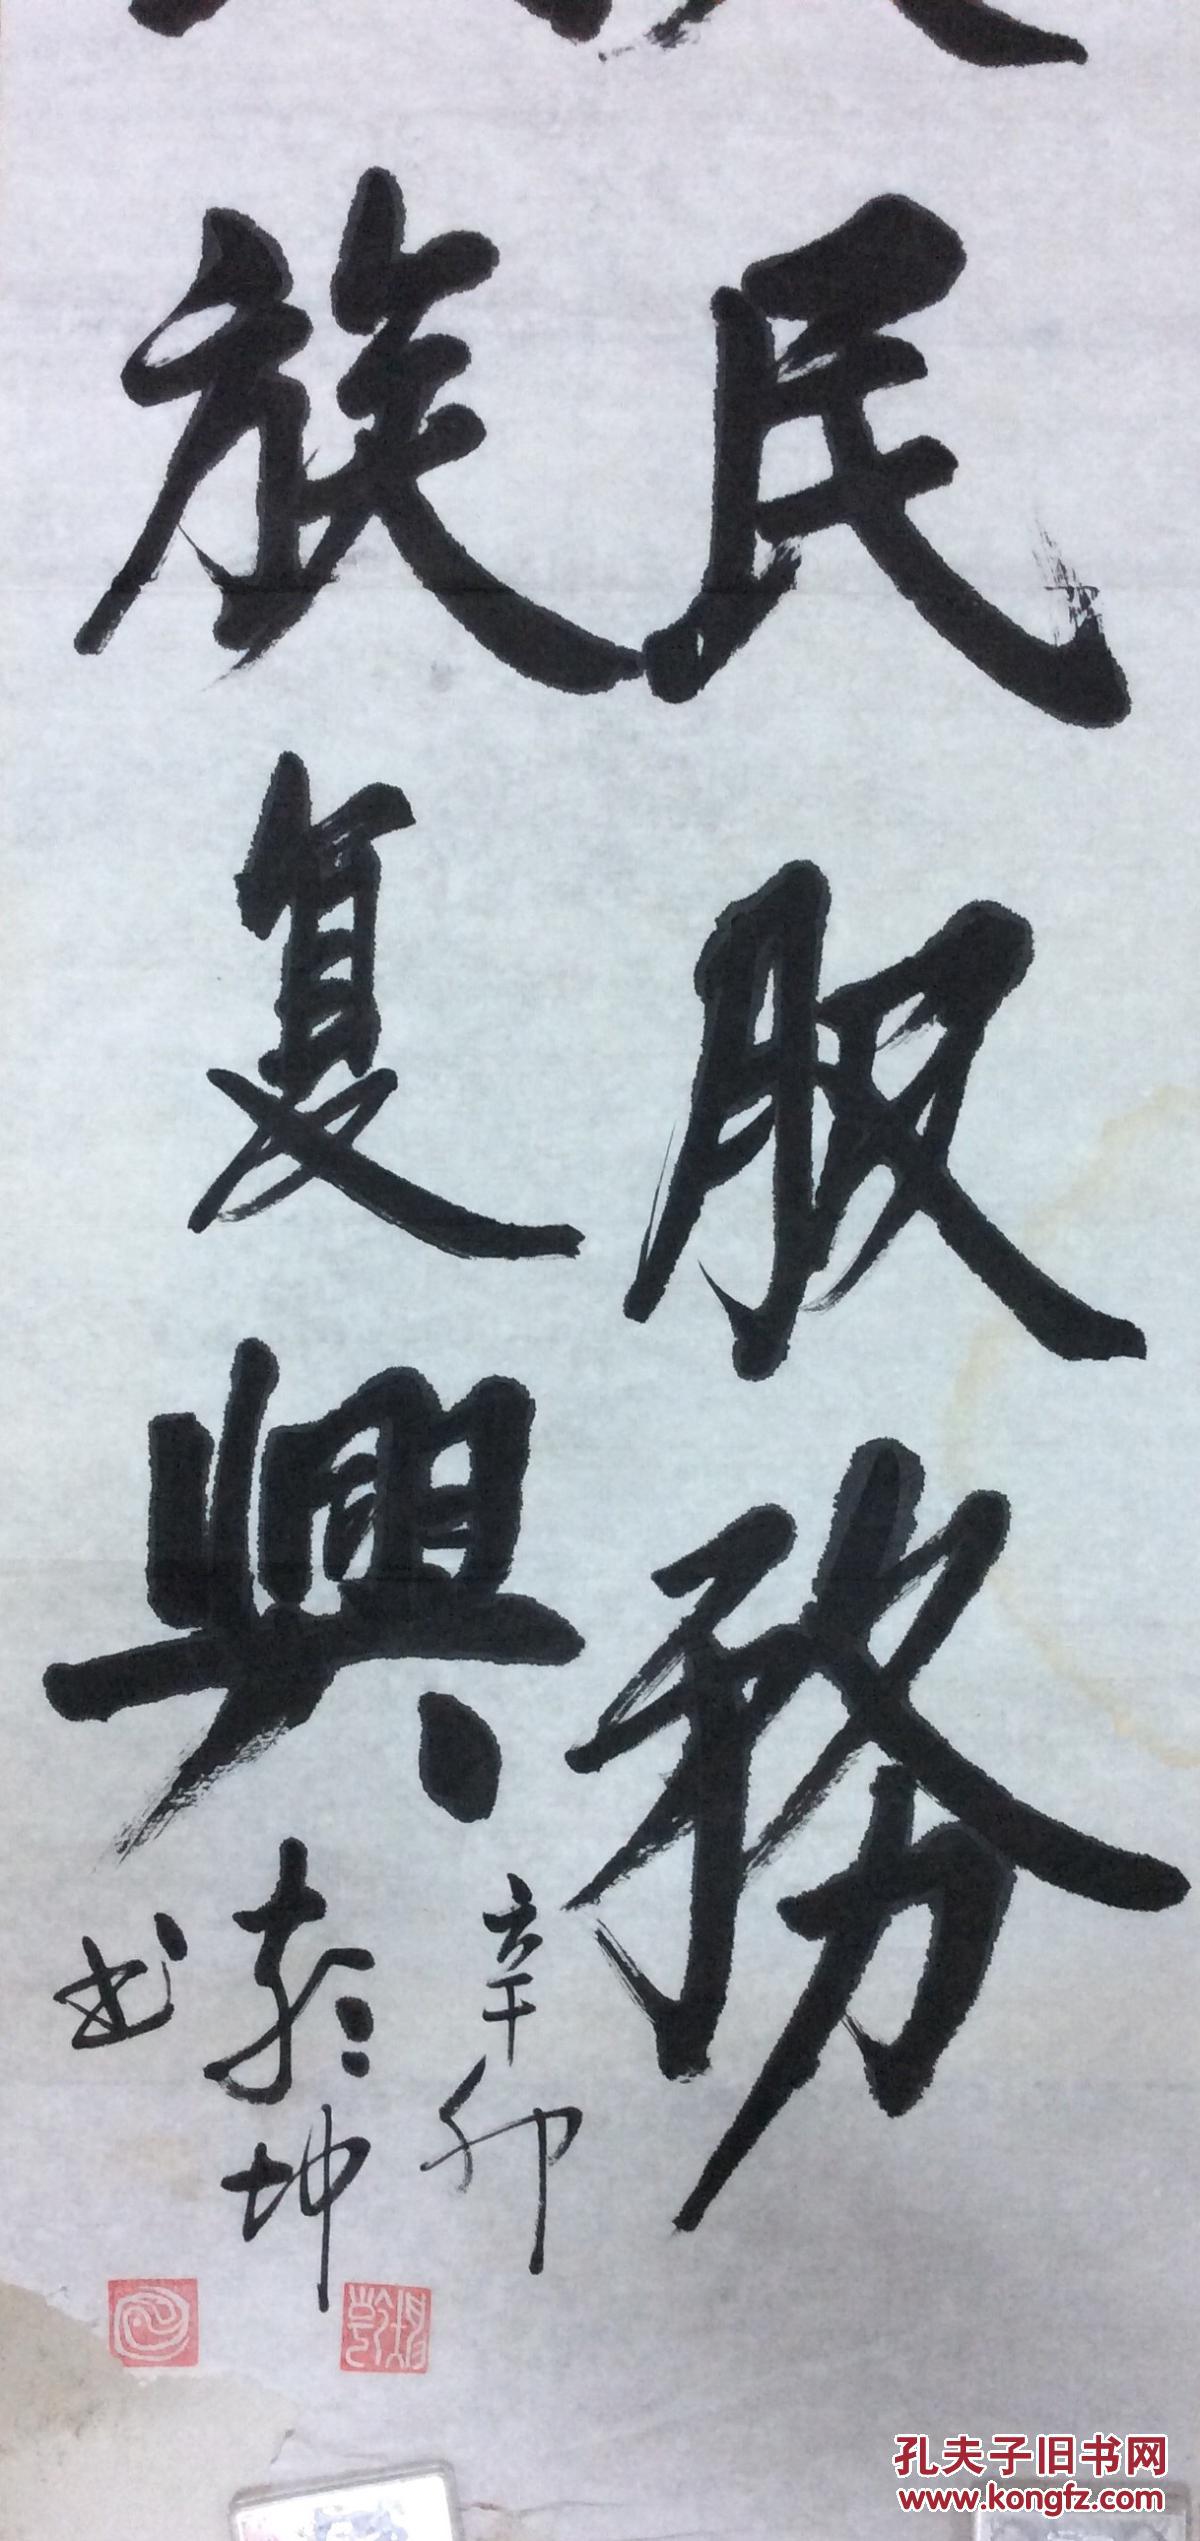 民服務
族复興
辛卯
乾坤
书
孔夫子旧书网
www.kongfz.com